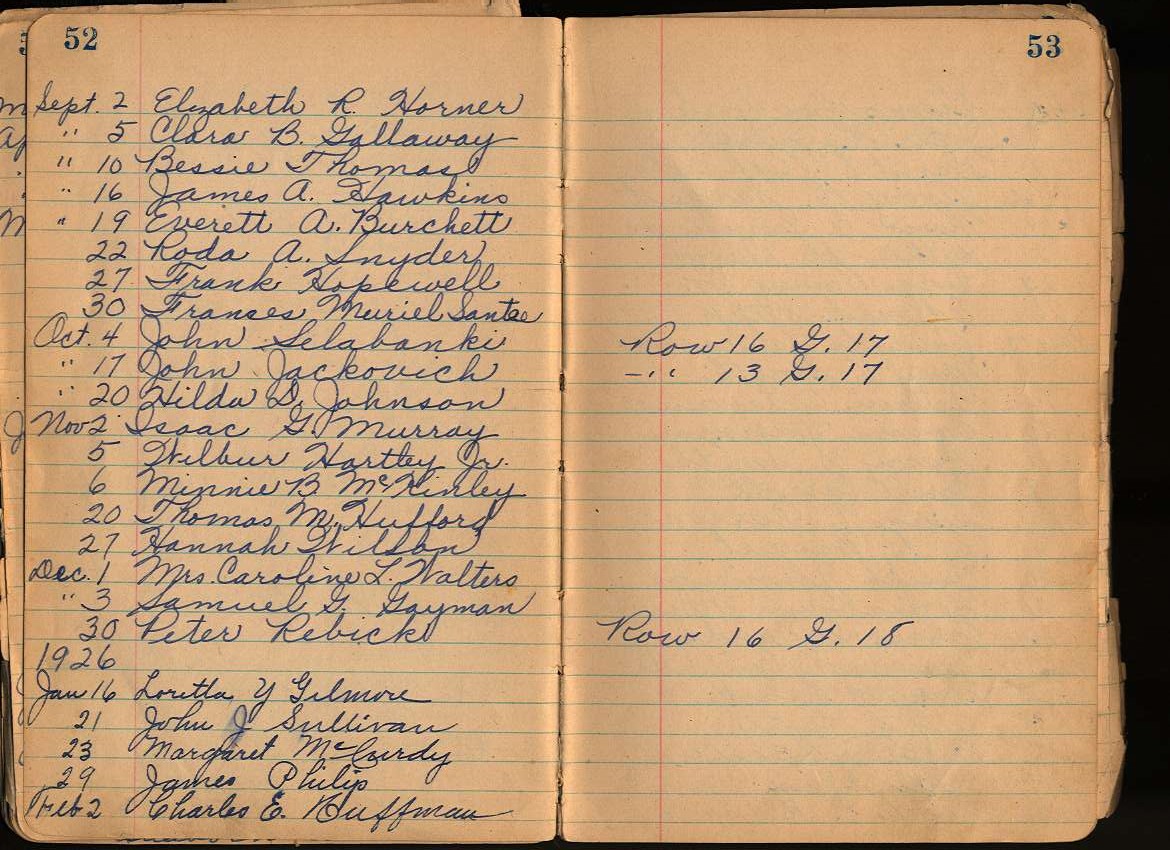 52
Sept. 2 Elizabeth R. Horner
" 5 Clara B. Gallaway
" 10 Bessie Thomas
" 16 James A. Hawkins
" 19 Everett A. Burchett
22 Roda A. Snyder
27 Frank Hopewell
30 Frances Muriel Santee
Oct. 4 John Selabanki
" 17 John Jackovich
" 20 Hilda D. Johnson
Nov 2 Isaac G. Murray
5 Wilbur Hartley Jr.
6 Minnie B. McKinley
20 Thomas M. Hufford
27 Hannah Wilson
Dec. 1 Mrs. Caroline L. Walters
" 3 Samuel G. Gayman
30 Peter Rebicki
1926
Jan 16 Loretta Y Gilmore
21 John J Sullivan
23 Margaret McCurdy
29 James Philip
Feb 2 Charles E. Huffman
53
Row 16 G. 17
-" 13 G. 17
Row 16 G. 18